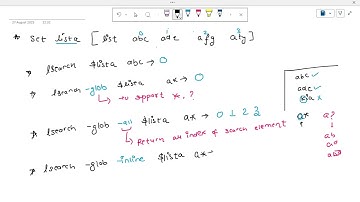 27 August 2023 12:20
* Set lista [ list abc ade afg aty ]
0 1 2 3
* lsearch $lista abc → 0
* lsearch -glob $lista ax → 0
↳ to support *, ?
* lsearch -glob -all $lista ax → 0 1 2 3
↳ Return all index of search element
* lsearch -glob -inline $lista ax
abc ✓
adc ✓
xia x
a*
a?
ab
ac